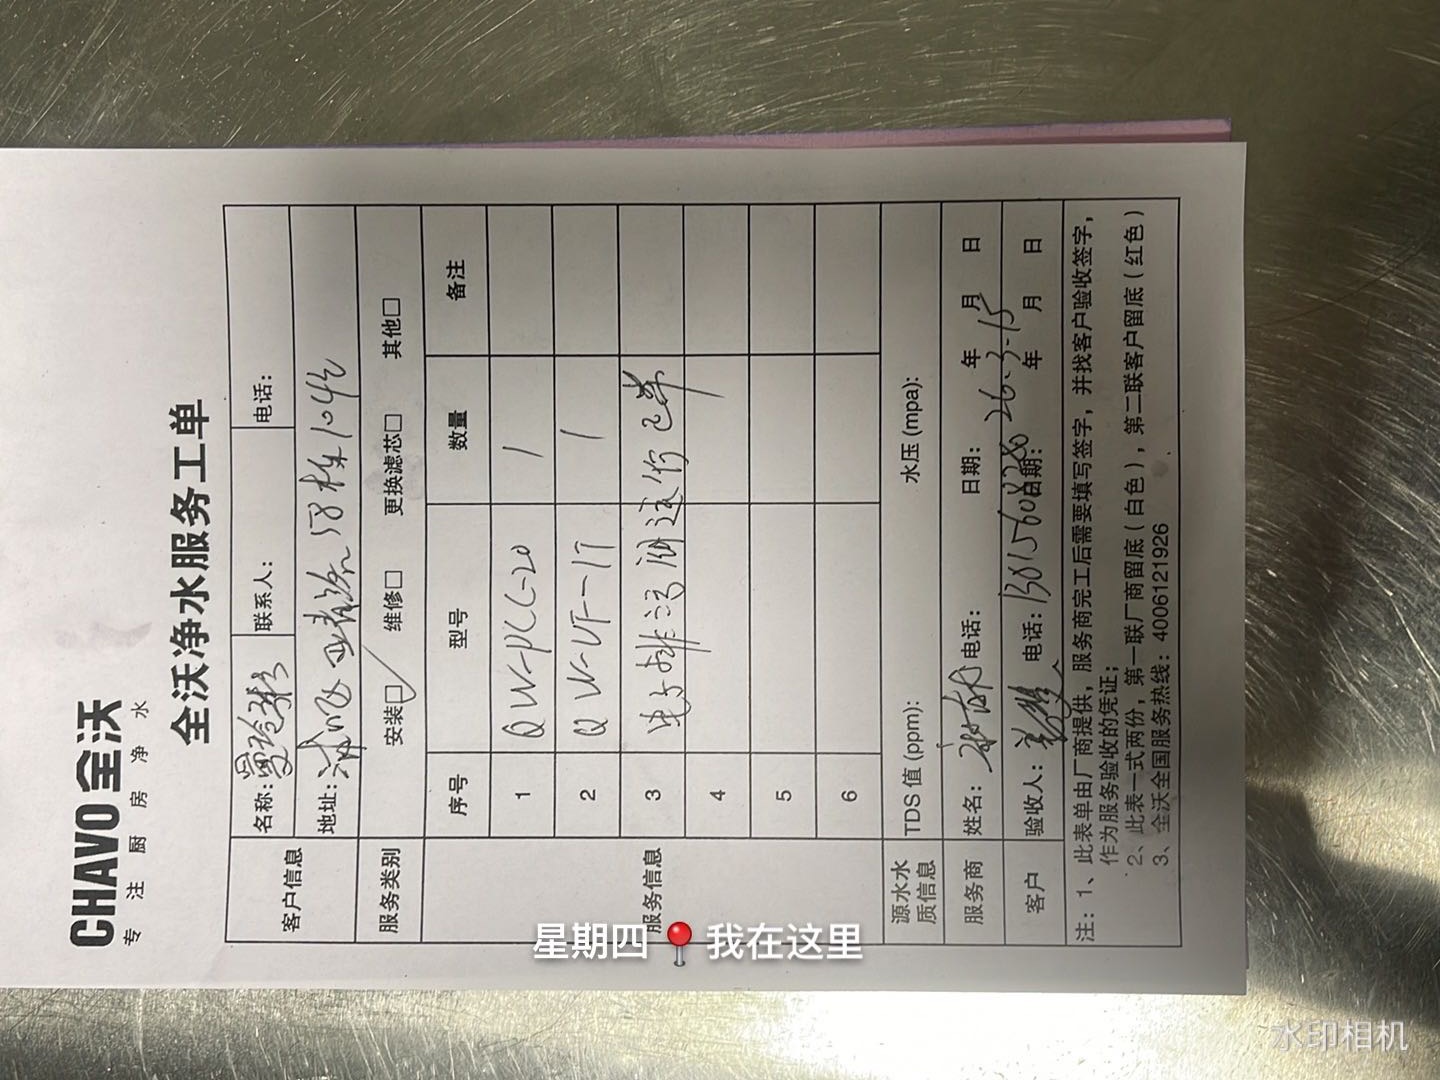 CHAVO 全沃
专注厨房净水
全沃净水服务工单
客户信息 名称: 联系人: 电话:
地址: 58栋104
服务类别 安装□✓ 维修□ 更换滤芯□ 其他□
服务信息 序号 型号 数量 备注
1 QW-PCC-20 1
2 QW-UF-1T 1
3 电子排污阀
4
5
6
源水水质信息 TDS 值 (ppm): 水压 (mpa):
服务商 姓名: 电话: 日期: 年 月 日
26.3.15
客户 验收人: 电话: 日期: 年 月 日
注: 1、此表单由厂商提供，服务商完工后需要填写签字，并找客户验收签字，
作为服务验收的凭证；
2、此表一式两份，第一联厂商留底（白色），第二联客户留底（红色）
3、全沃全国服务热线: 4006121926
星期四 📍 我在这里
水印相机